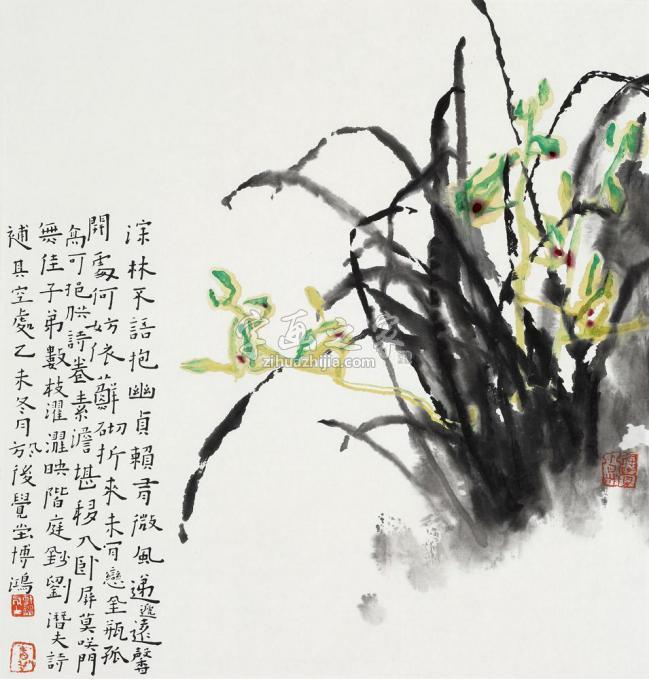 深林不語抱幽貞賴有微風遞遠馨
開處何妨依蘚砌折來未肯戀金瓶孤
高可挹供詩卷素澹堪移入臥屏莫笑門
無佳子弟數枝濯濯映階庭鈔劉潛夫詩
補其空處乙未冬月於後覺堂博鴻
字画之家
zihuazhijia.com